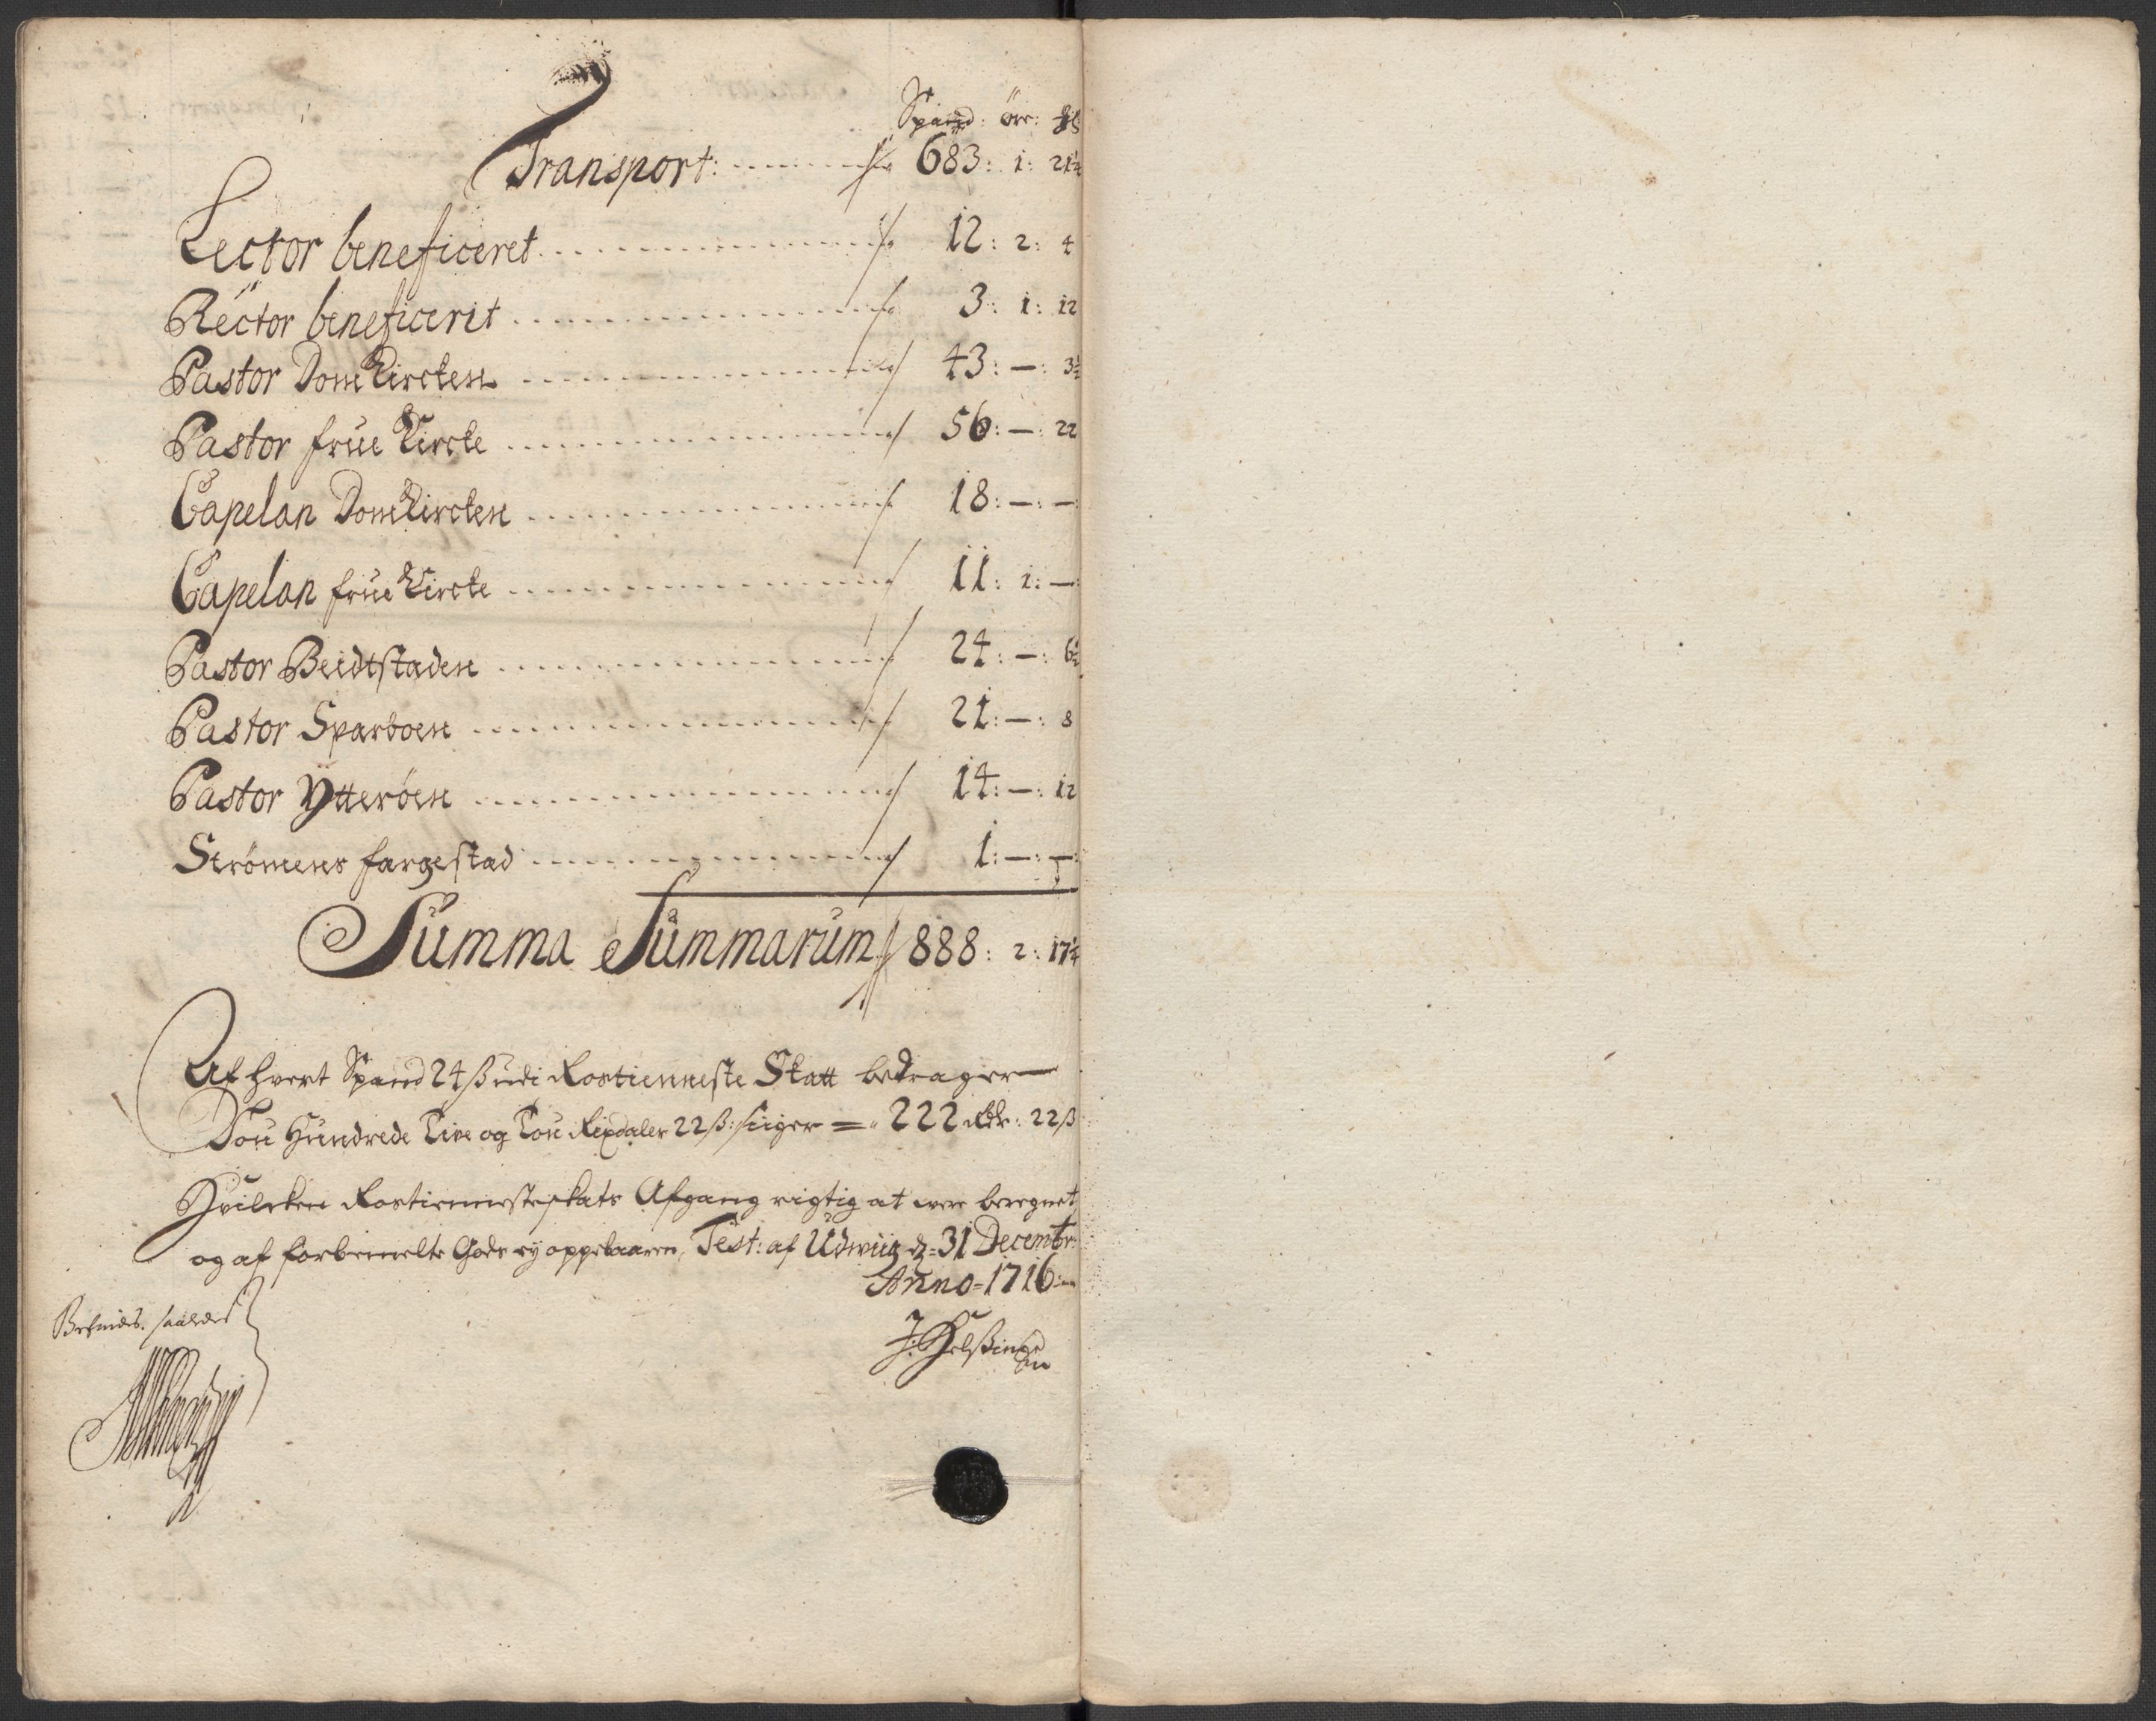 Spand: öre: ₰
Transport: 683: 1: 21¼
Lector beneficeret 12: 2: 4
Rector beneficerit 3: 1: 12
Pastor Dom Kircken 43: —: 3½
Pastor frue Kircke 56: —: 22
Capelan Domkircken 18: —: —
Capelan frue Kircke 11: 1: —
Pastor Beidtstaden 24: —: 6½
Pastor Sparboen 21: —: 8
Pastor Ytterøen 14: —: 12
Strömens fargestad 1: —: —
Summa Summarum 888: 2: 17¼
Af hvert Spand 24 ß udi Rostienneste Skatt bedrager
Tou Hundrede Tive og Tou Rixdaler 22 ß: siiger = 222 Rdr: 22 ß
Hvilcken Rostienesteskats Afgang rigtig at være beregnet
og af forbemelte Gods ej oppebaaren, Test: af Udwiig d: 31 Decembr:
Anno = 1716
Befindes saaledes
J: Helsing